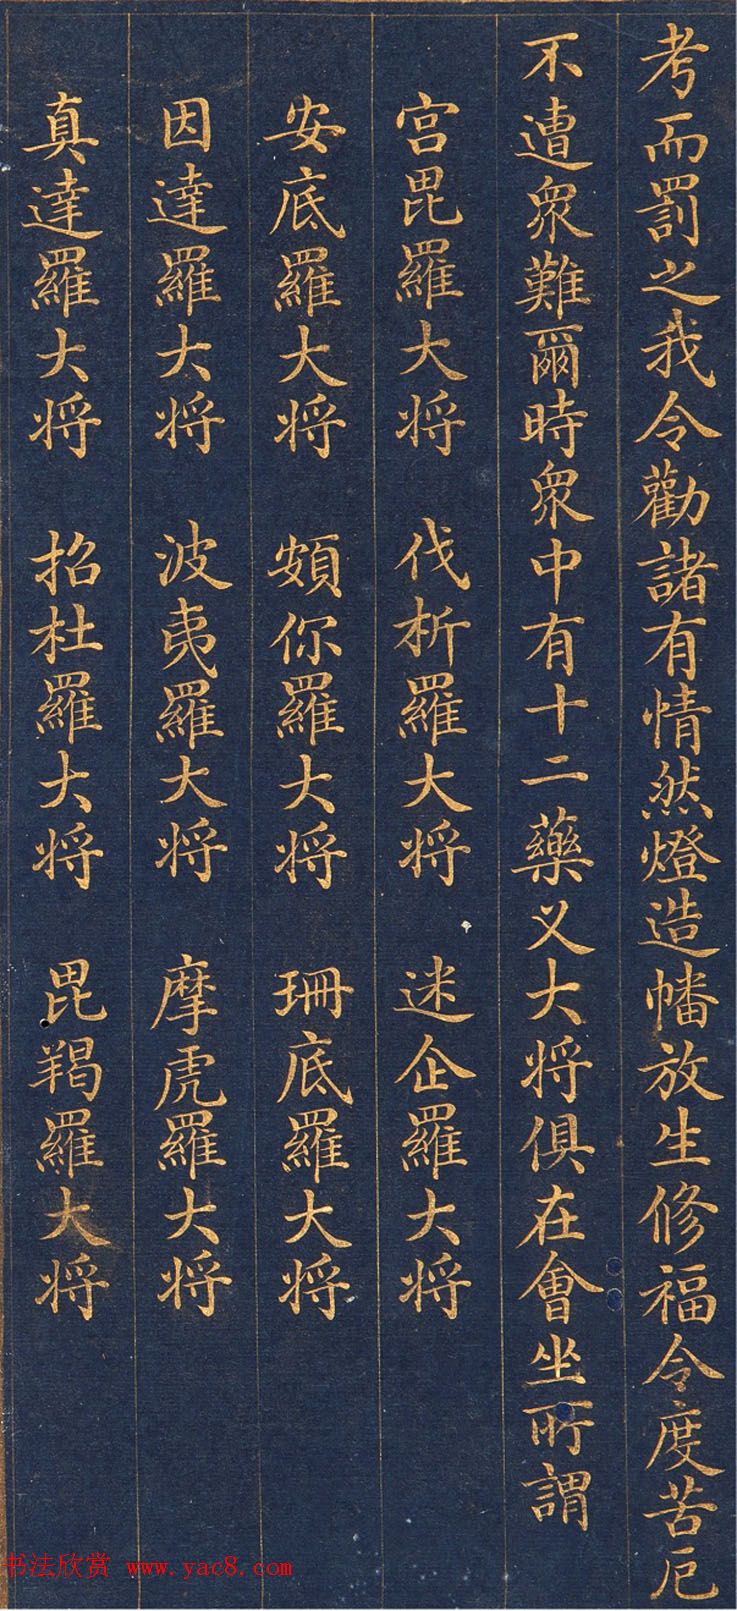 考而罰之我令勸諸有情然燈造幡放生修福令度苦厄
不遭衆難爾時衆中有十二藥义大将俱在會坐所謂
宫毘羅大将 伐析羅大将 迷企羅大将
安底羅大将 頞你羅大将 珊底羅大将
因達羅大将 波夷羅大将 摩虎羅大将
真達羅大将 招杜羅大将 毘羯羅大将
书法欣赏 www.yac8.com